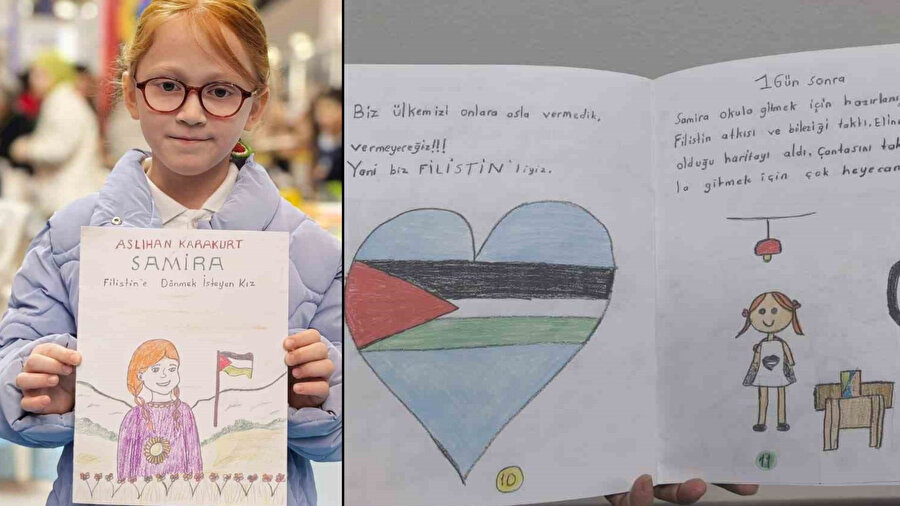 ASLIHAN KARAKURT
SAMİRA
Filistin'e Dönmek İsteyen Kız
Biz ülkemizi onlara asla vermedik,
vermeyeceğiz!!!
Yani biz FİLİSTİN'liyiz.
10
1 Gün sonra
Samira okula gitmek için
Filistin atkısı ve bileziği taktı.
olduğu haritayı aldı. Çantasını
la gitmek için çok
11